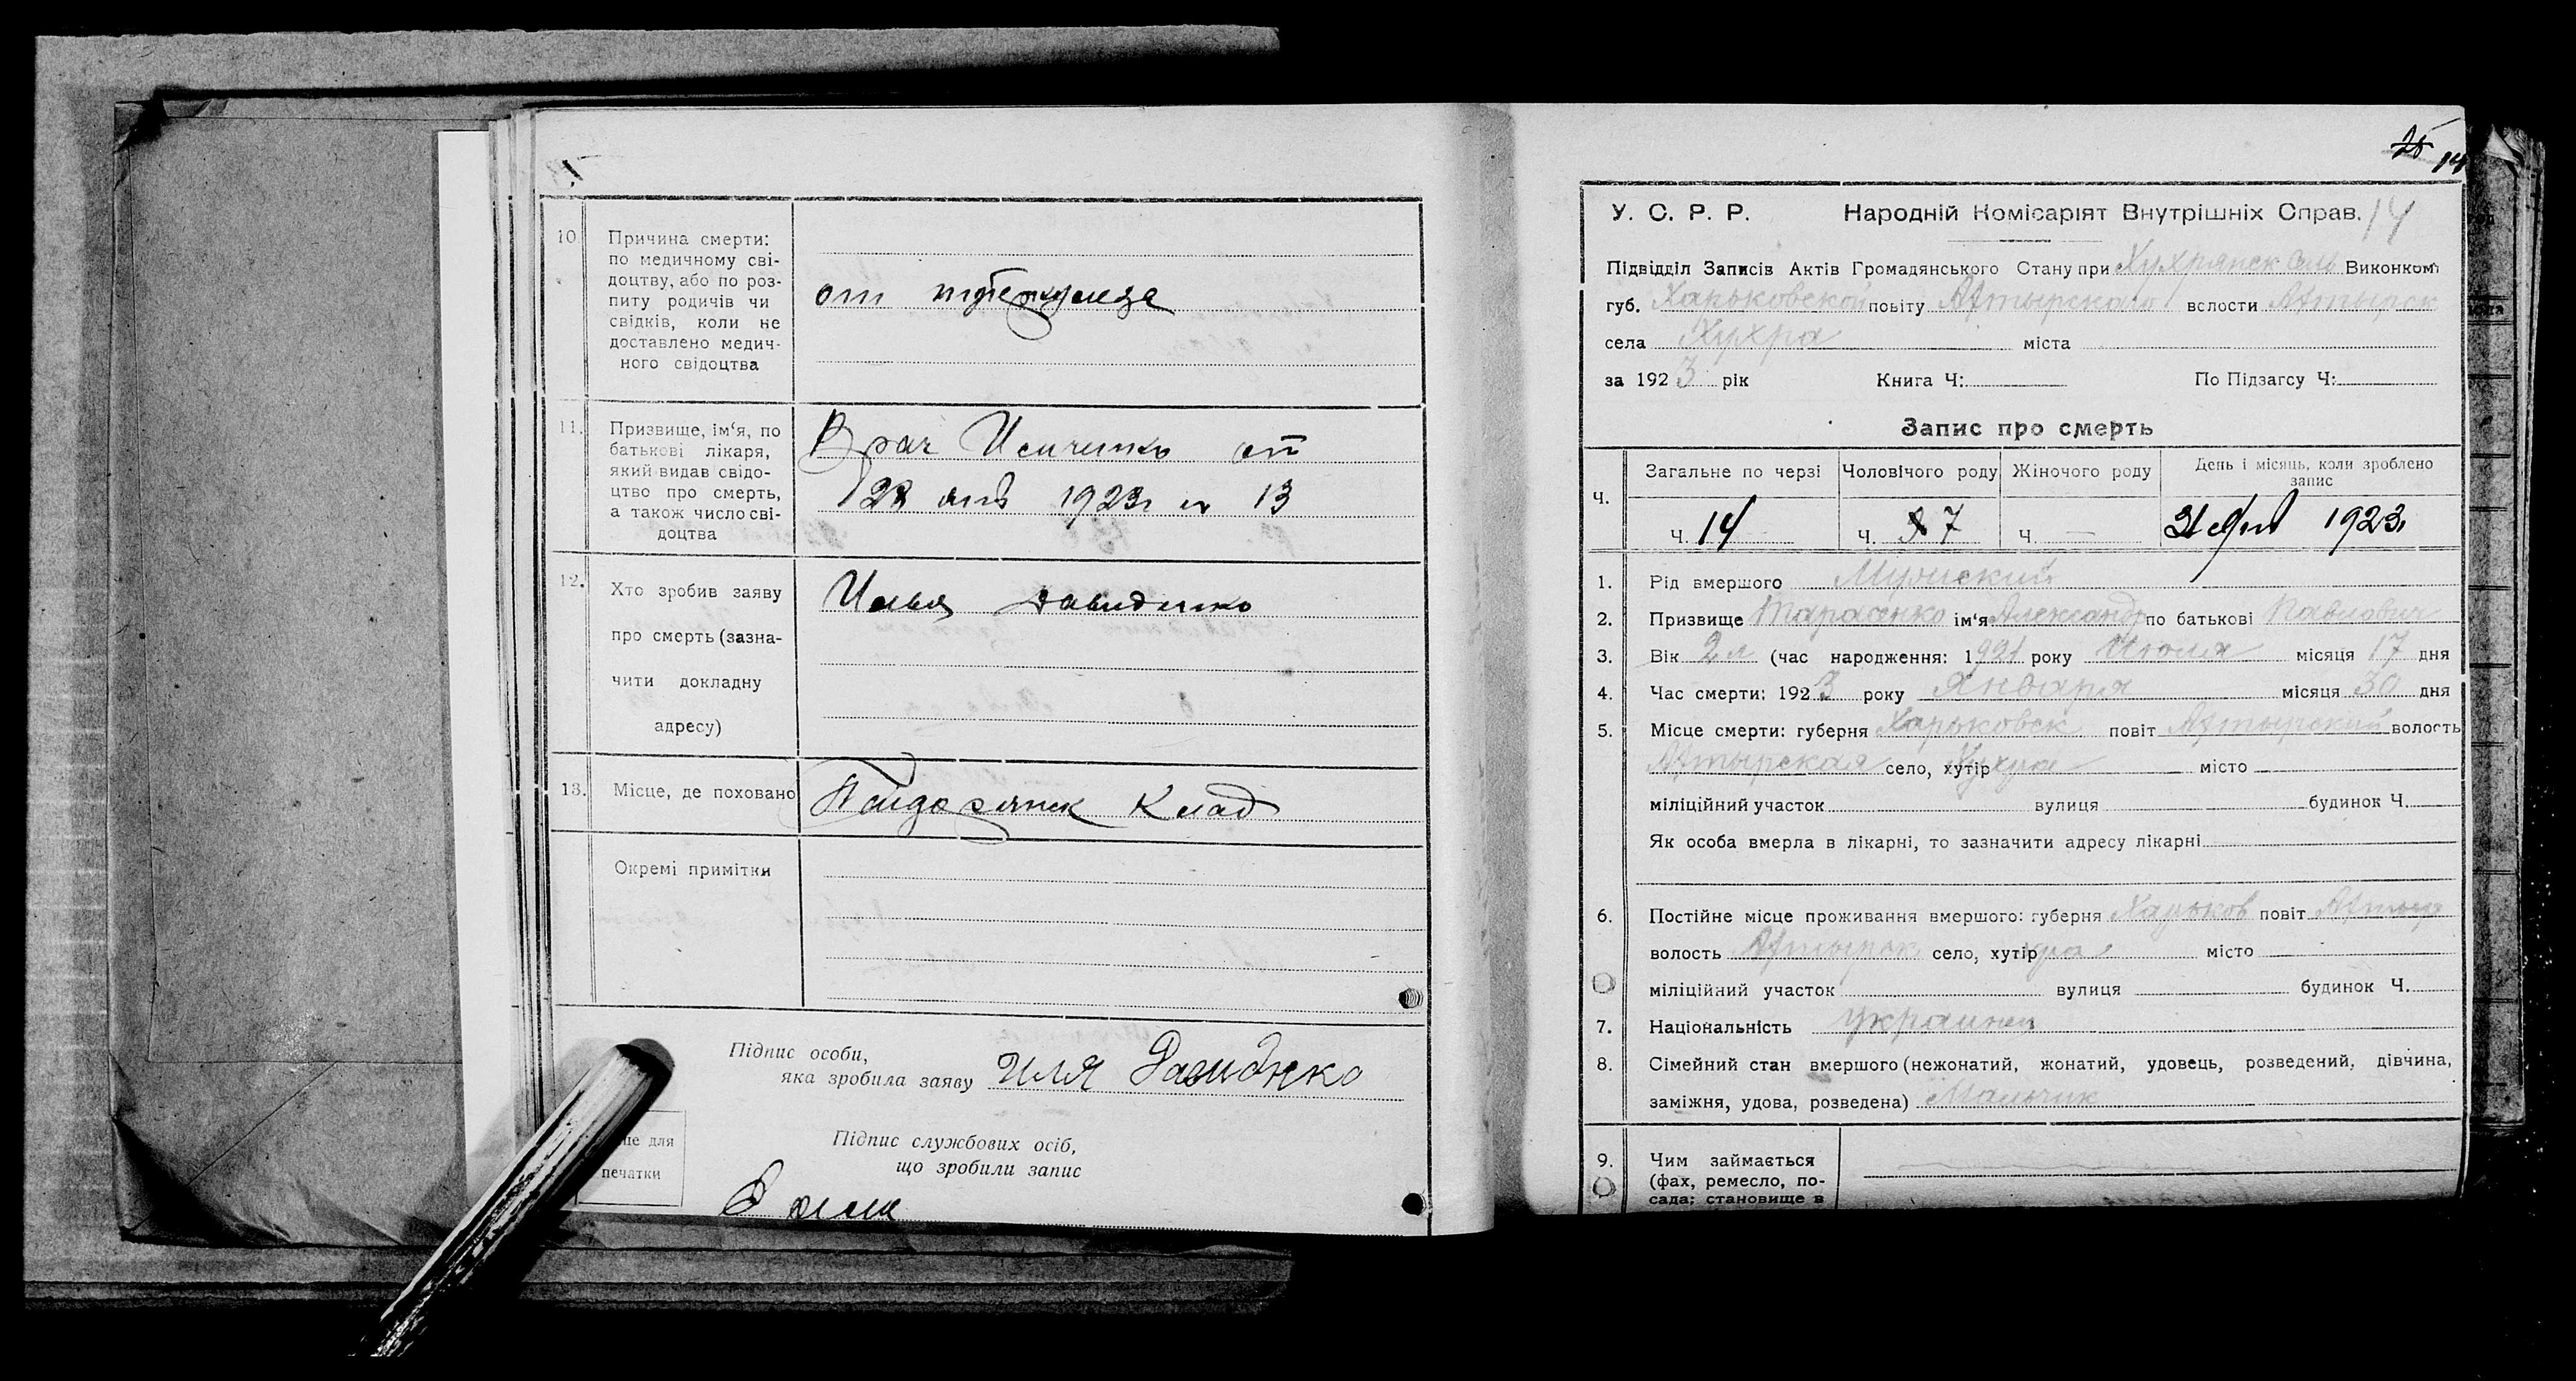 10. Причина смерти:
по медичному сві-
доцтву, або по роз-
питу родичів чи
свідків, коли не
доставлено медич-
ного свідоцтва
от туберкулеза
11. Призвище, ім'я, по
батькові лікаря,
який видав свідо-
цтво про смерть,
а також число сві-
доцтва
Врач от
1923 г № 13
12. Хто зробив заяву
про смерть (зазна-
чити докладну
адресу)
Илья Давиденко
13. Місце, де поховано
Клад
Окремі примітки
Підпис особи,
яка зробила заяву Иля Давиднко
Підпис службових осіб,
що зробили запис
це для
печатки
25 14
У. С. Р. Р. Народній Комісаріят Внутрішніх Справ. 14
Підвідділ Записів Актів Громадянського Стану при Хухрянск Сель Виконком
губ. Харьковской повіту Ахтырскаго волости Ахтырск
села Хухра міста
за 1923 рік Книга Ч: По Підзагсу Ч:
Запис про смерть
Ч. Загальне по черзі Чоловічого роду Жіночого роду День і місяць, коли зроблено
запис
Ч. 14 Ч. 7 Ч. — 31 Янв 1923
1. Рід вмершого Мужский
2. Призвище Тарасенко ім'я Александр по батькові Павлович
3. Вік 2 л (час народження: 1921 року Июля місяця 17 дня
4. Час смерти: 1923 року Января місяця 30 дня
5. Місце смерти: губерня Харьковск повіт Ахтырский волость
Ахтырская село, хутір Хухра місто
міліційний участок вулиця будинок Ч.
Як особа вмерла в лікарні, то зазначити адресу лікарні
6. Постійне місце проживання вмершого: губерня Харьков повіт Ахтыр
волость Ахтырск село, хутір місто
міліційний участок вулиця будинок Ч.
7. Національність украинец
8. Сімейний стан вмершого (нежонатий, жонатий, удовець, розведений, дівчина,
заміжня, удова, розведена) Мальчик
9. Чим займається
(фах, ремесло, по-
сада; становище в